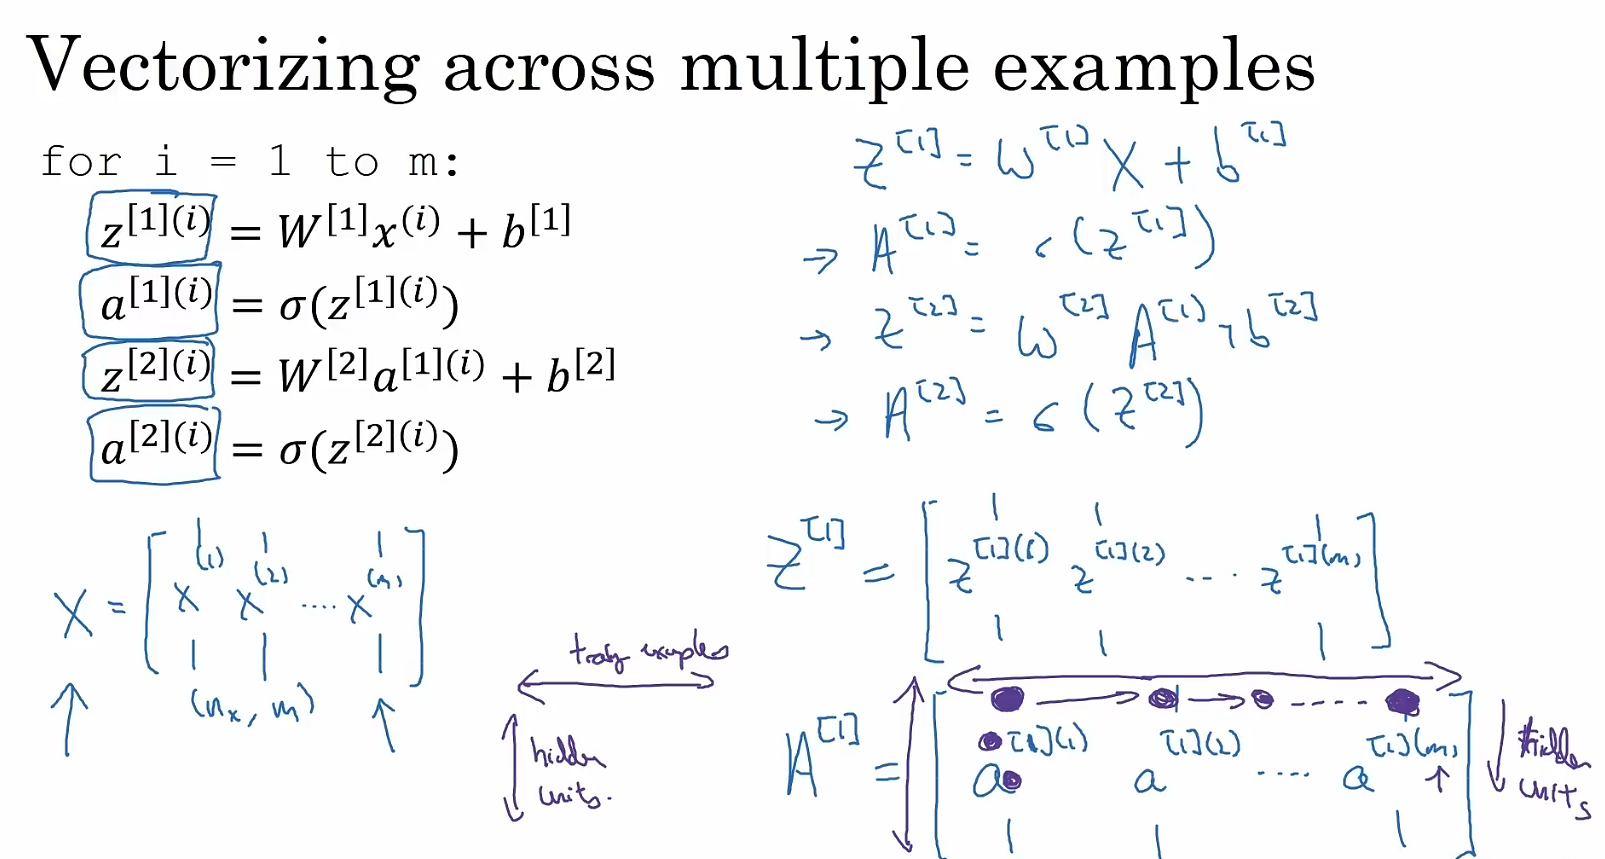 Vectorizing across multiple examples
for i = 1 to m:
z[1](i) = W[1]x(i) + b[1]
a[1](i) = σ(z[1](i))
z[2](i) = W[2]a[1](i) + b[2]
a[2](i) = σ(z[2](i))
Z[1] = W[1] X + b[1]
→ A[1] = σ(Z[1])
→ Z[2] = W[2] A[1] + b[2]
→ A[2] = σ(Z[2])
X = [x(1) x(2) .... x(m)]
(nx, m)
Z[1] = [z[1](1) z[1](2) .... z[1](m)]
examples
hidden
units.
A[1] = [a[1](1) a[1](2) .... a[1](m)]
hidden
units